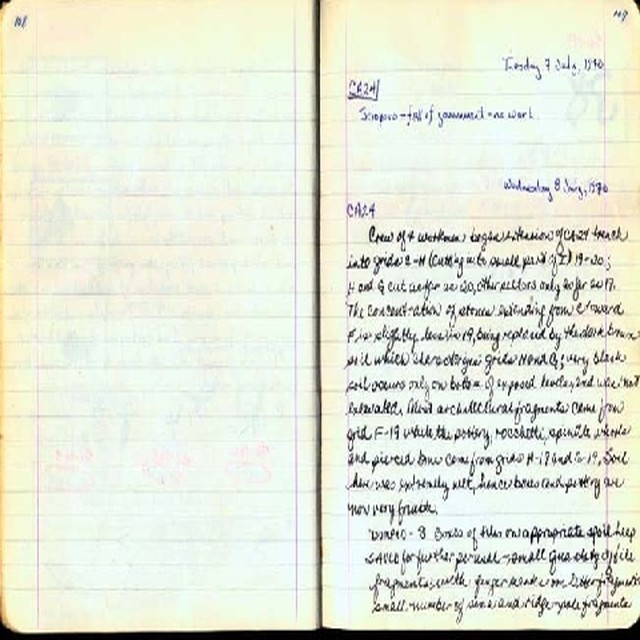 108
109
Tuesday 7 July, 1970
CA24
Sciopero - fall of government - no work
Wednesday 8 July, 1970
CA24
Crew of 4 workmen began extension of CA24 trench
into grids E-H (cutting into small part of I) 19-20;
H and G cut as far as 20, other sectors only as far as 19.
The concentration of stones extending from C toward
F is slightly less in 19, being replaced by the dark brown
soil which characterizes grids H and G; very black
soil occurs only on bottom of exposed levels, and was not
excavated. Most architectural fragments came from
grid F-19 while the pottery, rocchetti, spindle whorls
and pierced bone come from grids H-19 and G-19. Soil
here was extremely wet, hence bones and pottery are
now very friable.
- 8 boxes of tiles on appropriate spoil heap
saved for further perusal - small quantity of tile
fragments with finger marks on
small number of and ridge-pole fragments